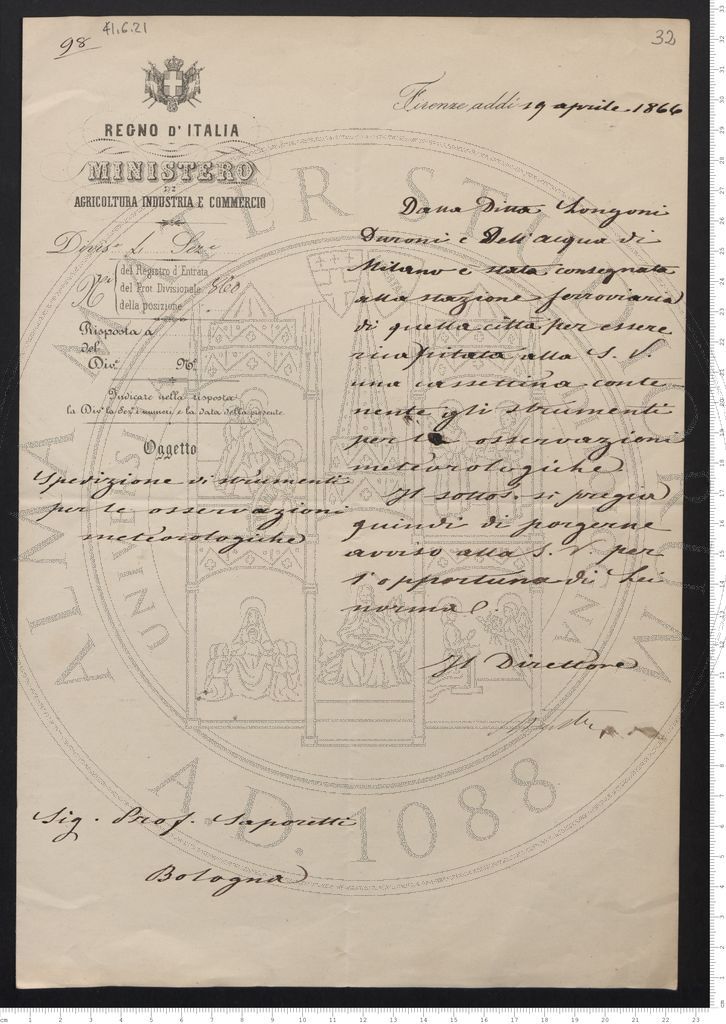 98
41.6.21
32
REGNO D'ITALIA
MINISTERO
DI
AGRICOLTURA INDUSTRIA E COMMERCIO
Firenze, addi 19 aprile 1866
Divis.e 1. Sez.e
N.ri
del Registro d'Entrata
del Prot. Divisionale 860
della posizione
Risposta a
del
Div.e N.o
Indicare nella risposta
la Div.e la Sez.e i numeri e la data della presente.
Oggetto
Spedizione di strumenti
per le osservazioni
meteorologiche
Dalla Ditta Longoni
Duroni e Dell'acqua di
Milano è stata consegnata
alla stazione ferroviaria
di quella città per essere
ricapitata alla S. V.
una cassettina conte
nente gli strumenti
per le osservazioni
meteorologiche
Il sottos. si pregia
quindi di porgerne
avviso alla S. V. per
l'opportuna di Lei
norma.
Il Direttore
Sig. Prof. Saporetti
Bologna
ALMA MATER STUDIORUM
A.D. 1088